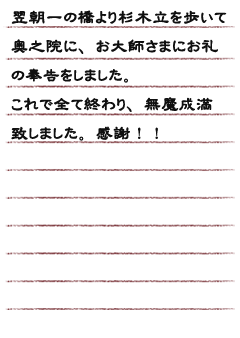 翌朝一の橋より杉木立を歩いて
奥之院に、お大師さまにお礼
の奉告をしました。
これで全て終わり、無魔成満
致しました。感謝！！